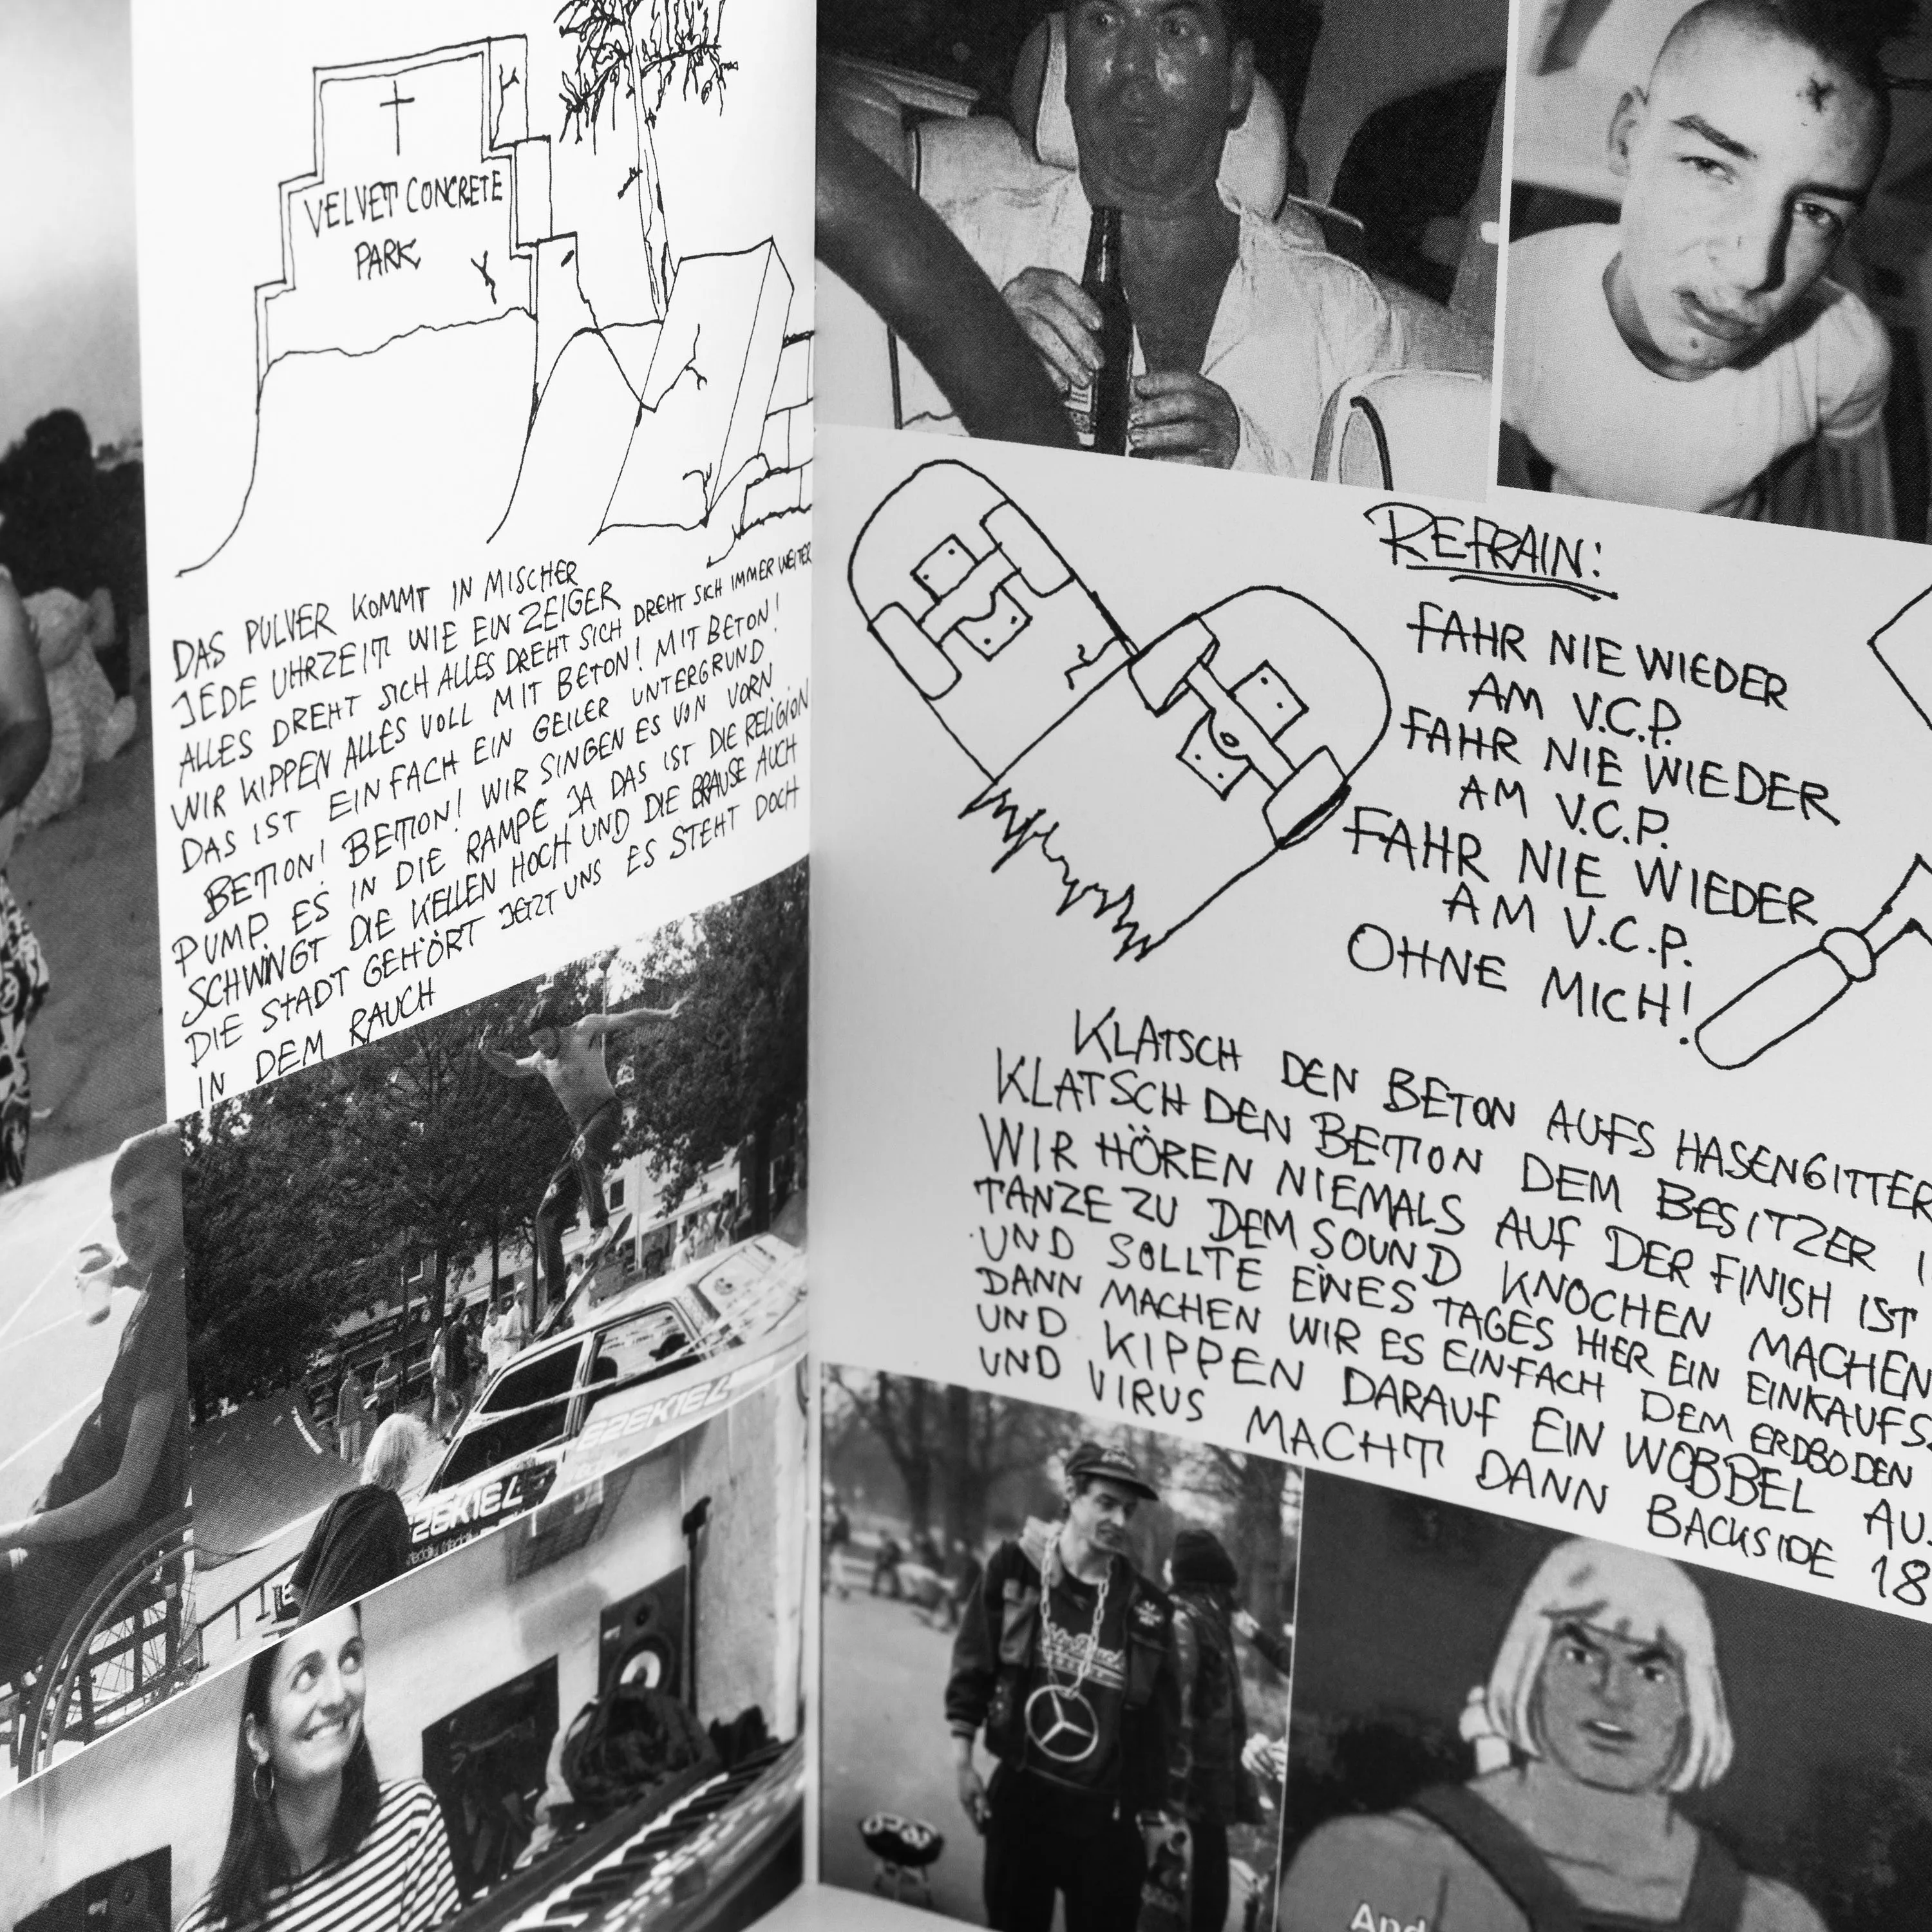 VELVET CONCRETE
PARK
DAS PULVER KOMMT IN MISCHER
JEDE UHRZEIT WIE EIN ZEIGER
ALLES DREHT SICH ALLES DREHT SICH DREHT SICH IMMER WEITER
WIR KIPPEN ALLES VOLL MIT BETON! MIT BETON!
DAS IST EINFACH EIN GEILER UNTERGRUND
BETON! BETON! WIR SINGEN ES VON VORN
PUMP ES IN DIE RAMPE JA DAS IST DIE RELIGION
SCHWINGT DIE KELLEN HOCH UND DIE BRAUSE AUCH
DIE STADT GEHÖRT JETZT UNS ES STEHT DOCH
IN DEM RAUCH
EZEKIEL
EZEKIEL
REFRAIN:
FAHR NIE WIEDER
AM V.C.P.
FAHR NIE WIEDER
AM V.C.P.
FAHR NIE WIEDER
AM V.C.P.
OHNE MICH!
KLATSCH DEN BETON AUFS HASENGITTER
KLATSCH DEN BETON DEM BESITZER I
WIR HÖREN NIEMALS AUF DER FINISH IST
TANZE ZU DEM SOUND KNOCHEN MACHEN
UND SOLLTE EINES TAGES HIER EIN EINKAUFS
DANN MACHEN WIR ES EINFACH DEM ERDBODEN
UND KIPPEN DARAUF EIN WOBBEL AU
UND VIRUS MACHT DANN BACKSIDE 18
And